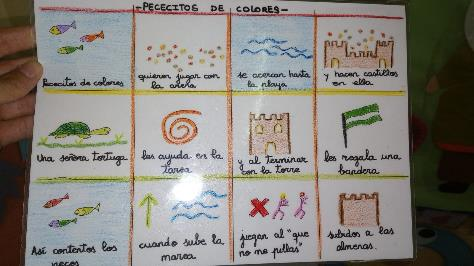 -PECECITOS DE COLORES-
Pececitos de colores
quieren jugar con
la arena
se acercan hasta
la playa
y hacen castillos
en ella
Una señora tortuga
les ayuda en la
tarea
y al terminar
con la torre
les regala una
bandera
Así contentos los
peces
cuando sube la
marea
juegan al "que
no me pillas"
subidos a las
almenas.